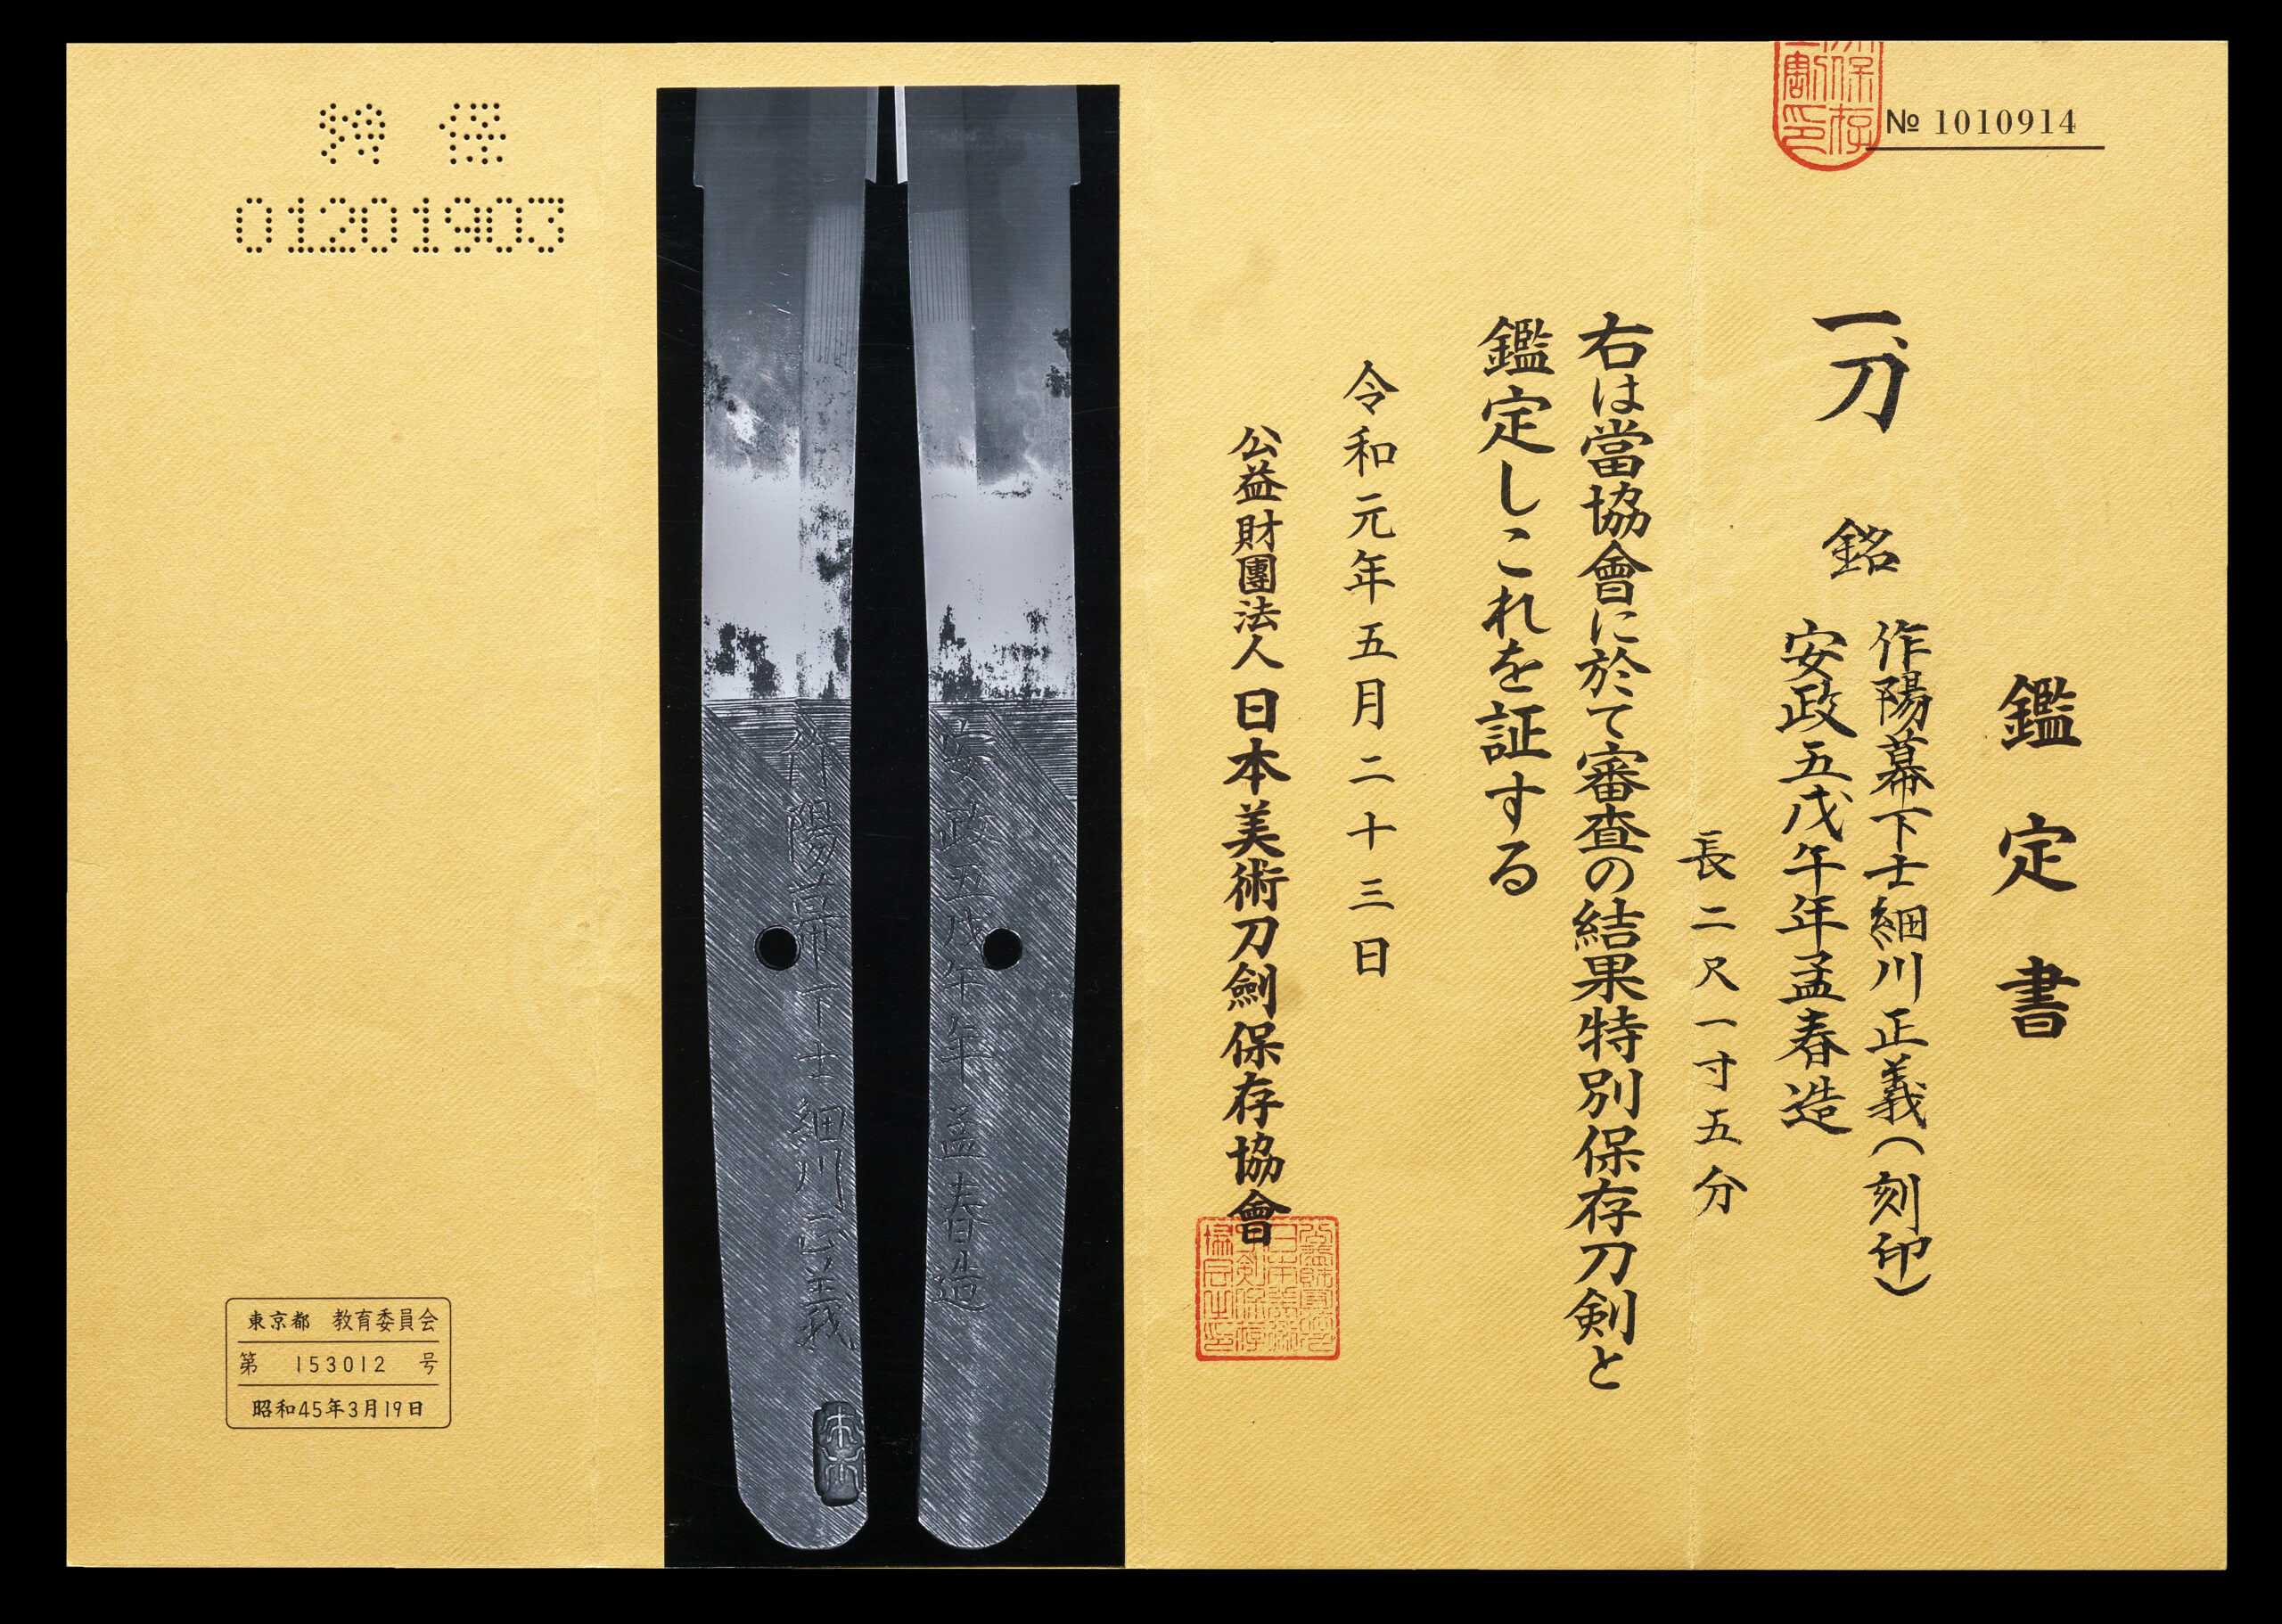 № 1010914
鑑定書
一刀
銘
作陽幕下士細川正義(刻印)
安政五戊午年孟春造
長二尺一寸五分
右は當協會に於て審査の結果特別保存刀剣と
鑑定しこれを証する
令和元年五月二十三日
公益財團法人日本美術刀劍保存協會
安政五戊午年孟春造
作陽幕下士細川正義
特保
01201903
東京都 教育委員会
第 153012 号
昭和45年3月19日